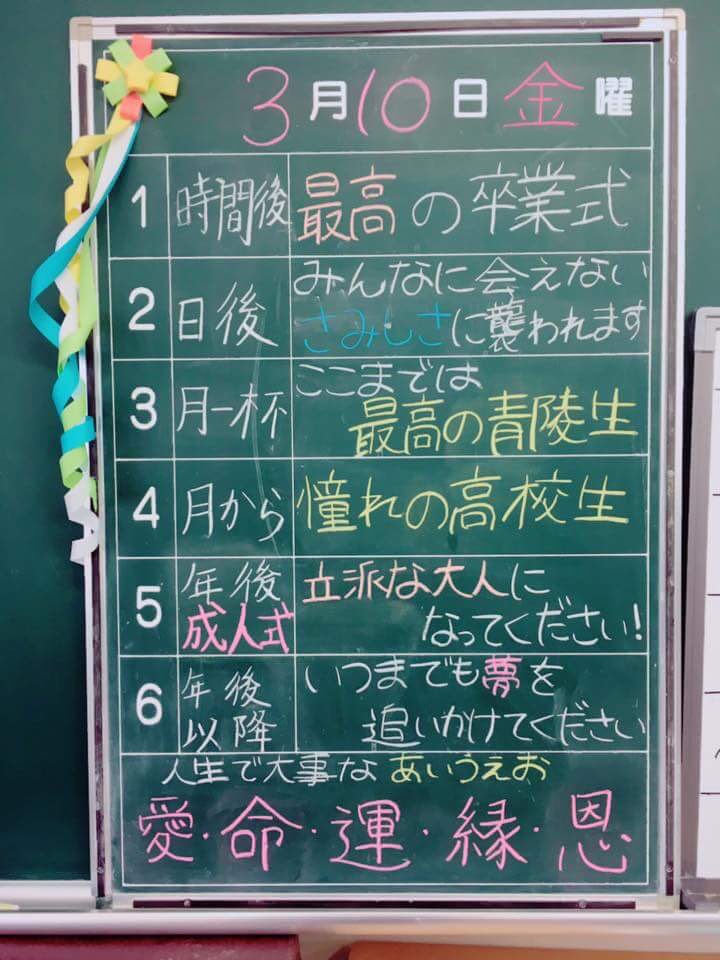 3月10日金曜
1 時間後 最高の卒業式
2 日後 みんなに会えない
さみしさに襲われます
3 月一杯 ここまでは
最高の青陵生
4 月から 憧れの高校生
5 年後 立派な大人に
成人式 なってください!
6 年後 いつまでも夢を
以降 追いかけてください
人生で大事な あいうえお
愛・命・運・縁・恩